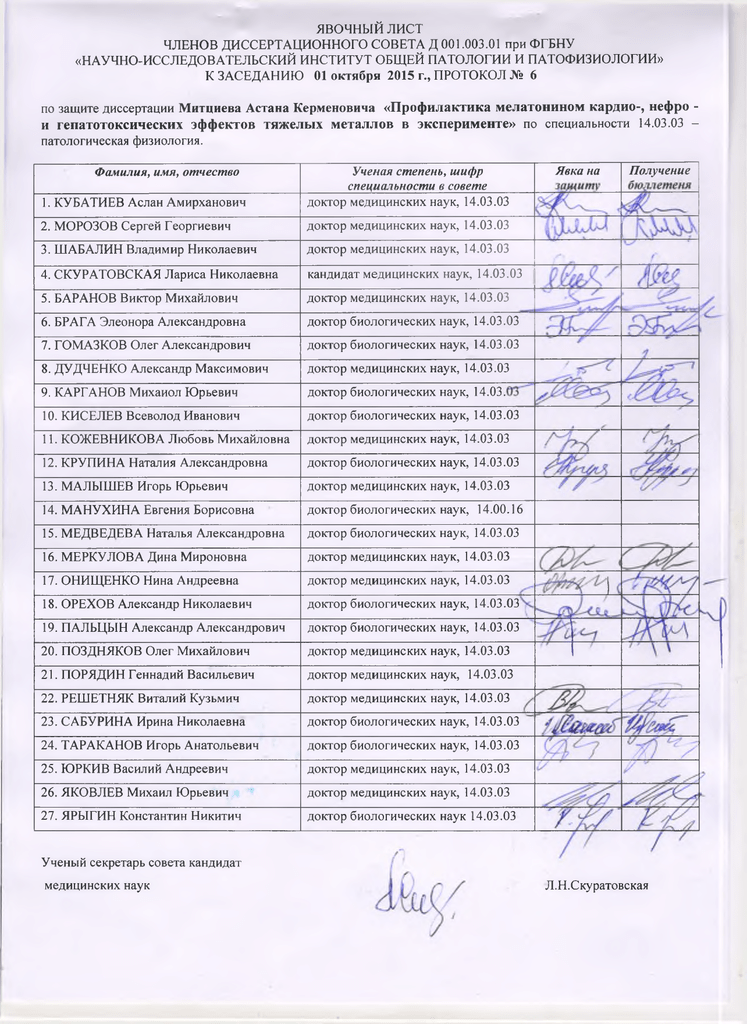 ЯВОЧНЫЙ ЛИСТ
ЧЛЕНОВ ДИССЕРТАЦИОННОГО СОВЕТА Д 001.003.01 при ФГБНУ
«НАУЧНО-ИССЛЕДОВАТЕЛЬСКИЙ ИНСТИТУТ ОБЩЕЙ ПАТОЛОГИИ И ПАТОФИЗИОЛОГИИ»
К ЗАСЕДАНИЮ 01 октября 2015 г., ПРОТОКОЛ № 6
по защите диссертации Митциева Астана Керменовича «Профилактика мелатонином кардио-, нефро -
и гепатотоксических эффектов тяжелых металлов в эксперименте» по специальности 14.03.03 –
патологическая физиология.
Фамилия, имя, отчество Ученая степень, шифр специальности в совете Явка на защиту Получение бюллетеня
1. КУБАТИЕВ Аслан Амирханович доктор медицинских наук, 14.03.03
2. МОРОЗОВ Сергей Георгиевич доктор медицинских наук, 14.03.03
3. ШАБАЛИН Владимир Николаевич доктор медицинских наук, 14.03.03
4. СКУРАТОВСКАЯ Лариса Николаевна кандидат медицинских наук, 14.03.03
5. БАРАНОВ Виктор Михайлович доктор медицинских наук, 14.03.03
6. БРАГА Элеонора Александровна доктор биологических наук, 14.03.03
7. ГОМАЗКОВ Олег Александрович доктор биологических наук, 14.03.03
8. ДУДЧЕНКО Александр Максимович доктор биологических наук, 14.03.03
9. КАРГАНОВ Михаиол Юрьевич доктор биологических наук, 14.03.03
10. КИСЕЛЕВ Всеволод Иванович доктор биологических наук, 14.03.03
11. КОЖЕВНИКОВА Любовь Михайловна доктор медицинских наук, 14.03.03
12. КРУПИНА Наталия Александровна доктор биологических наук, 14.03.03
13. МАЛЫШЕВ Игорь Юрьевич доктор медицинских наук, 14.03.03
14. МАНУХИНА Евгения Борисовна доктор биологических наук, 14.00.16
15. МЕДВЕДЕВА Наталья Александровна доктор биологических наук, 14.03.03
16. МЕРКУЛОВА Дина Мироновна доктор медицинских наук, 14.03.03
17. ОНИЩЕНКО Нина Андреевна доктор медицинских наук, 14.03.03
18. ОРЕХОВ Александр Николаевич доктор биологических наук, 14.03.03
19. ПАЛЬЦЫН Александр Александрович доктор биологических наук, 14.03.03
20. ПОЗДНЯКОВ Олег Михайлович доктор медицинских наук, 14.03.03
21. ПОРЯДИН Геннадий Васильевич доктор медицинских наук, 14.03.03
22. РЕШЕТНЯК Виталий Кузьмич доктор медицинских наук, 14.03.03
23. САБУРИНА Ирина Николаевна доктор биологических наук, 14.03.03
24. ТАРАКАНОВ Игорь Анатольевич доктор биологических наук, 14.03.03
25. ЮРКИВ Василий Андреевич доктор медицинских наук, 14.03.03
26. ЯКОВЛЕВ Михаил Юрьевич доктор медицинских наук, 14.03.03
27. ЯРЫГИН Константин Никитич доктор биологических наук 14.03.03
Ученый секретарь совета кандидат
медицинских наук Л.Н.Скуратовская